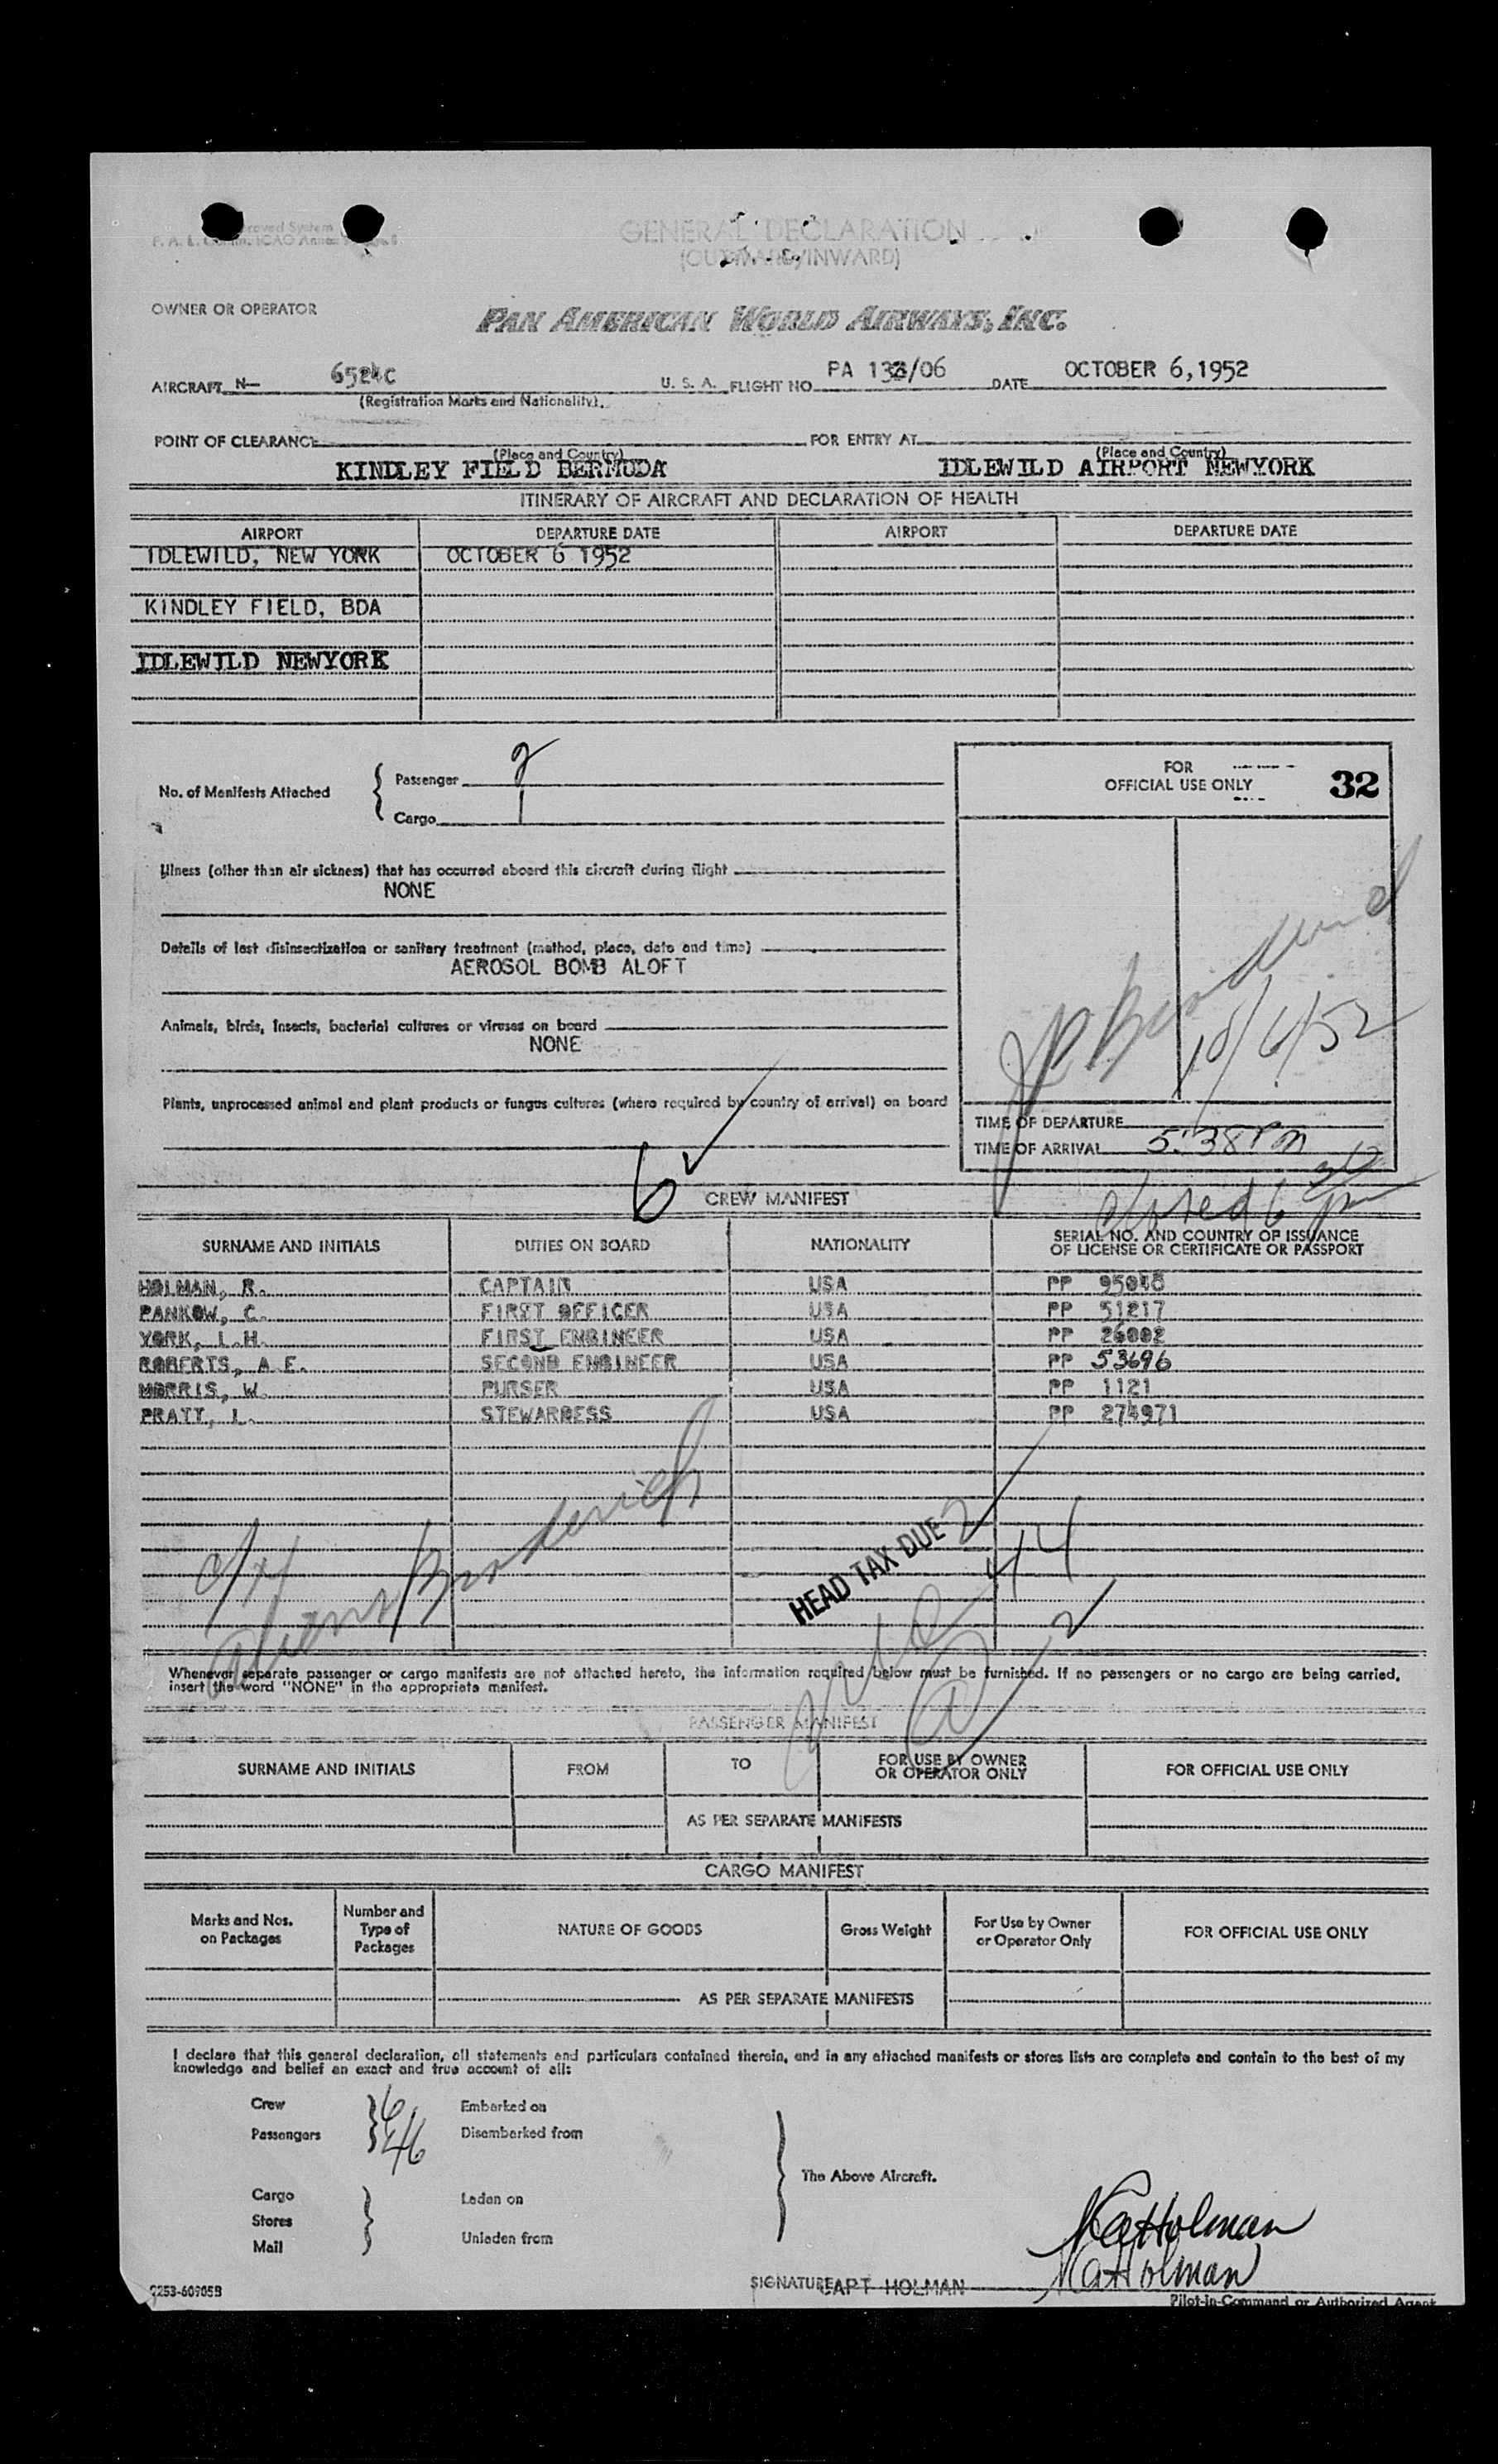 GENERAL DECLARATION
(OUTWARD/INWARD)
OWNER OR OPERATOR
PAN AMERICAN WORLD AIRWAYS, INC.
AIRCRAFT N— 6524C U. S. A. FLIGHT NO. PA 133/06 DATE OCTOBER 6,1952
(Registration Marks and Nationality).
POINT OF CLEARANCE FOR ENTRY AT
(Place and Country) (Place and Country)
KINDLEY FIELD BERMUDA IDLEWILD AIRPORT NEWYORK
ITINERARY OF AIRCRAFT AND DECLARATION OF HEALTH
AIRPORT DEPARTURE DATE AIRPORT DEPARTURE DATE
IDLEWILD, NEW YORK OCTOBER 6 1952
KINDLEY FIELD, BDA
IDLEWILD NEWYORK
No. of Manifests Attached
Passenger 2
Cargo 1
FOR
OFFICIAL USE ONLY 32
Illness (other than air sickness) that has occurred aboard this aircraft during flight
NONE
Details of last disinsectization or sanitary treatment (method, place, date and time)
AEROSOL BOMB ALOFT
Animals, birds, insects, bacterial cultures or viruses on board
NONE
10/6/52
Plants, unprocessed animal and plant products or fungus cultures (where required by country of arrival) on board
TIME OF DEPARTURE
TIME OF ARRIVAL 5:38 PM
6
CREW MANIFEST
SURNAME AND INITIALS DUTIES ON BOARD NATIONALITY SERIAL NO. AND COUNTRY OF ISSUANCE
OF LICENSE OR CERTIFICATE OR PASSPORT
HOLMAN, R. CAPTAIN USA PP 95048
PANKOW, C. FIRST OFFICER USA PP 51217
YORK, L.H. FIRST ENGINEER USA PP 26002
ROBERTS, A E. SECOND ENGINEER USA PP 53696
MORRIS, W. PURSER USA PP 1121
PRATT, L. STEWARDESS USA PP 274971
HEAD TAX DUE 2
44
2
Whenever separate passenger or cargo manifests are not attached hereto, the information required below must be furnished. If no passengers or no cargo are being carried,
insert the word "NONE" in the appropriate manifest.
PASSENGER MANIFEST
SURNAME AND INITIALS FROM TO FOR USE BY OWNER
OR OPERATOR ONLY FOR OFFICIAL USE ONLY
AS PER SEPARATE MANIFESTS
CARGO MANIFEST
Marks and Nos.
on Packages
Number and
Type of
Packages
NATURE OF GOODS
Gross Weight
For Use by Owner
or Operator Only
FOR OFFICIAL USE ONLY
AS PER SEPARATE MANIFESTS
I declare that this general declaration, all statements and particulars contained therein, and in any attached manifests or stores lists are complete and contain to the best of my
knowledge and belief an exact and true account of all:
Crew 6 Embarked on
Passengers 46 Disembarked from
The Above Aircraft.
Cargo Laden on
Stores
Mail Unladen from
Holman
SIGNATURE CAPT HOLMAN Holman
Pilot-in-Command or Authorized Agent